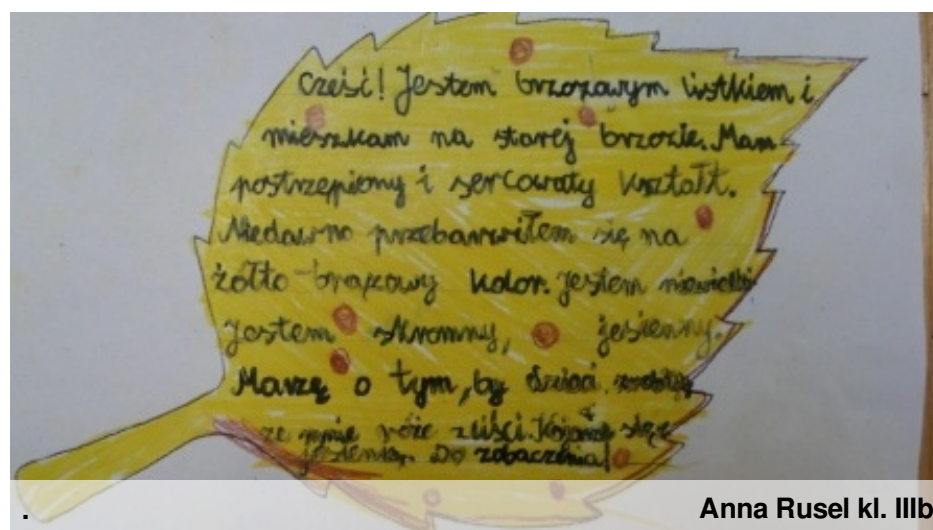 Cześć! Jestem brzozowym listkiem i
mieszkam na starej brzozie. Mam
postrzępiony i sercowaty kształt.
Niedawno przebarwiłem się na
żółto-brązowy kolor. Jestem niewielki
Jestem skromny, jesienny.
Marzę o tym, by dzieci zrobiły
ze mnie róże z liści. Kojarzę się z
jesienią. Do zobaczenia!
. Anna Rusel kl. IIIb